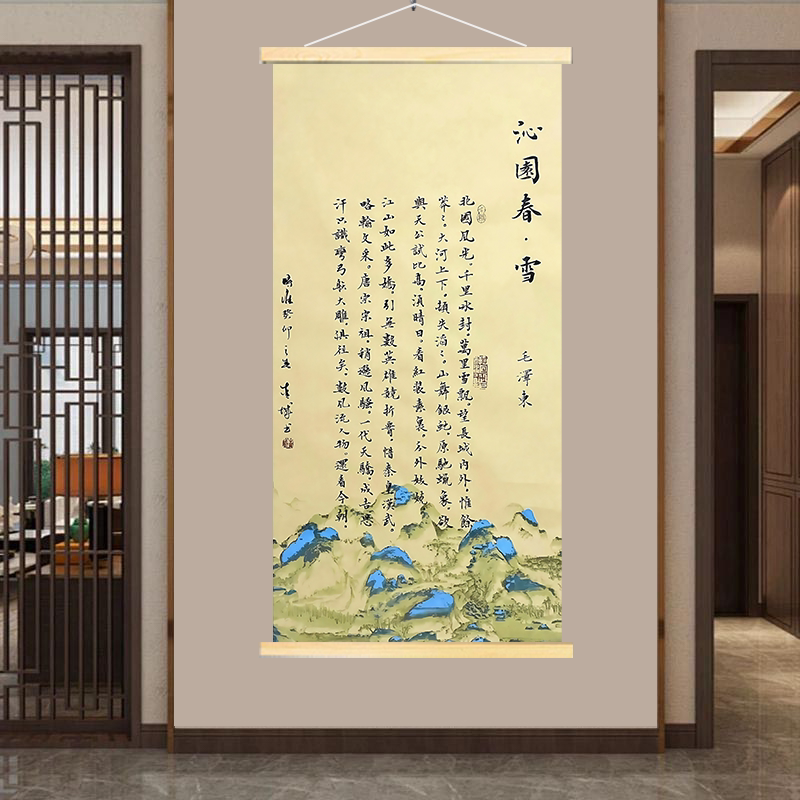 沁園春·雪
毛澤東
北國風光,千里冰封,萬里雪飄。望長城內外,惟餘
莽々。大河上下,頓失滔々。山舞銀蛇,原馳蠟象,欲
與天公試比高。須晴日,看紅裝素裹,分外妖嬈。
江山如此多嬌,引無數英雄競折腰。惜秦皇漢武,
略輸文采。唐宗宋祖,稍遜風騷。一代天驕,成吉思
汗只識彎弓射大雕。俱往矣,數風流人物。還看今朝。
時維癸卯之